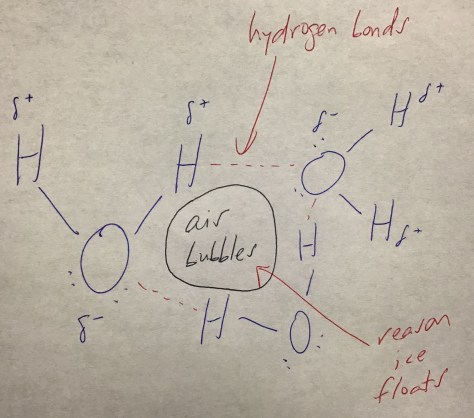 hydrogen bonds
δ+
H
δ+
H
δ-
O
H δ+
H δ+
air
bubbles
H
O
δ-
H
O
reason
ice
floats